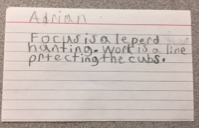 Adrian
Focus is a leperd
hanting. Work is a line
prtecting the cubs.